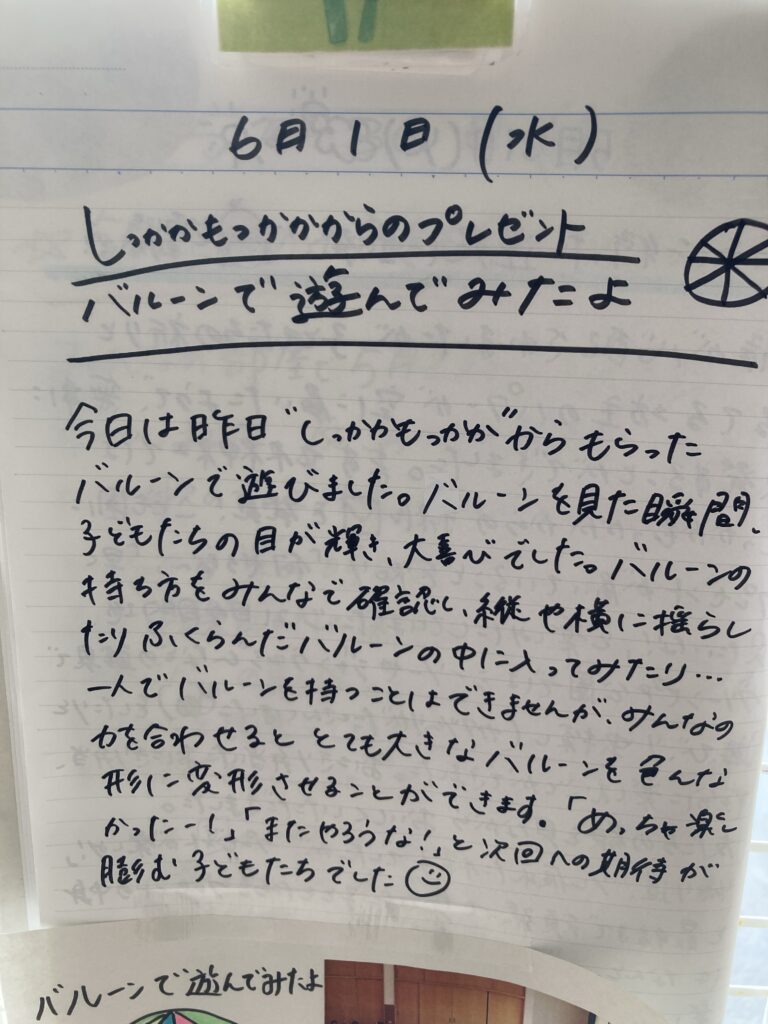 6月1日(水)
しっかかもっかかからのプレゼント
バルーンで遊んでみたよ
今日は昨日“しっかかもっかか”からもらった
バルーンで遊びました。バルーンを見た瞬間、
子どもたちの目が輝き、大喜びでした。バルーンの
持ち方をみんなで確認し、縦や横に揺らし
たりふくらんだバルーンの中に入ってみたり…
一人でバルーンを持つことはできませんが、みんなの
力を合わせるととても大きなバルーンを色んな
形に変形させることができます。「めっちゃ楽し
かったー!」「またやろうな!」と次回への期待が
膨む子どもたちでした
バルーンで遊んでみたよ